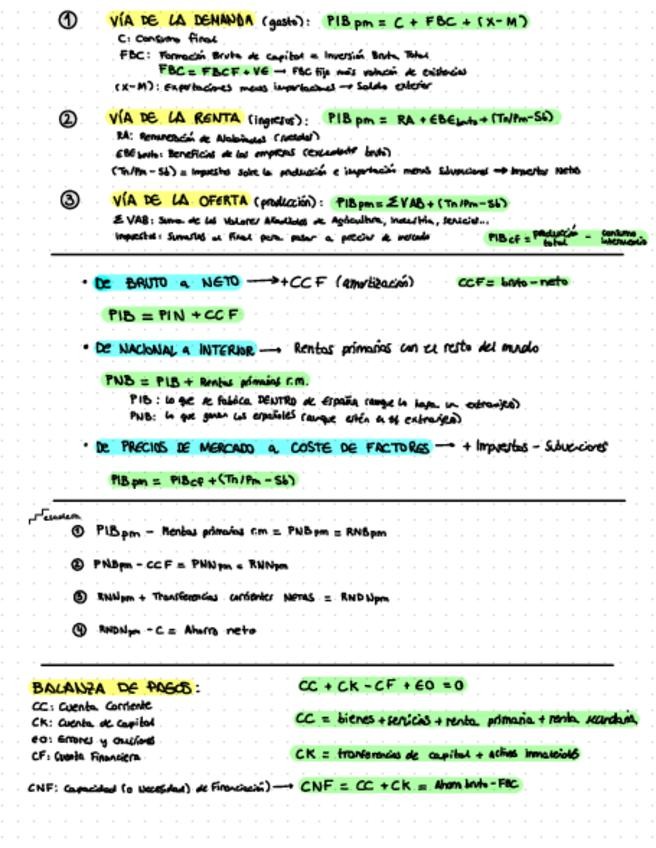 ① VÍA DE LA DEMANDA (gasto): PIB pm = C + FBC + (X-M)
C: Consumo final
FBC: Formación Bruta de Capital = Inversión Bruta Total
FBC = FBCF + VE → FBC fijo más variación de existencias
(X-M): Exportaciones menos importaciones → Saldo exterior
② VÍA DE LA RENTA (ingresos): PIB pm = RA + EBE bruto + (Tn/Pm-Sb)
RA: Remuneración de Asalariados
EBE bruto: Beneficios de las empresas (excedente bruto)
(Tn/Pm-Sb) = Impuestos sobre la producción e importación menos Subvenciones → Impuestos Netos
③ VÍA DE LA OFERTA (producción): PIB pm = Σ VAB + (Tn/Pm-Sb)
Σ VAB: Suma de los Valores Añadidos de Agricultura, industria, servicios...
Impuestos: Sumarlos al final para pasar a precios de mercado
PIB cf = producción total - consumo intermedio
• DE BRUTO a NETO → +CCF (amortización) CCF = bruto - neto
PIB = PIN + CCF
• DE NACIONAL a INTERIOR → Rentas primarias con el resto del mundo
PNB = PIB + Rentas primarias r.m.
PIB: lo que se fabrica DENTRO de España (aunque lo haga un extranjero)
PNB: lo que ganan los españoles (aunque estén en el extranjero)
• DE PRECIOS DE MERCADO a COSTE DE FACTORES → + Impuestos - Subvenciones
PIB pm = PIB cf + (Tn/Pm - Sb)
escalera
① PIB pm - Rentas primarias r.m = PNB pm = RNB pm
② PNB pm - CCF = PNN pm = RNN pm
③ RNN pm + Transferencias corrientes NETAS = RNDN pm
④ RNDN pm - C = Ahorro neto
BALANZA DE PAGOS: CC + CK - CF + EO = 0
CC: Cuenta Corriente
CK: Cuenta de Capital
EO: Errores y Omisiones
CF: Cuenta Financiera
CC = bienes + servicios + renta primaria + renta secundaria
CK = transferencias de capital + activos inmateriales
CNF: Capacidad (o Necesidad) de Financiación) → CNF = CC + CK = Ahorro bruto - FBC